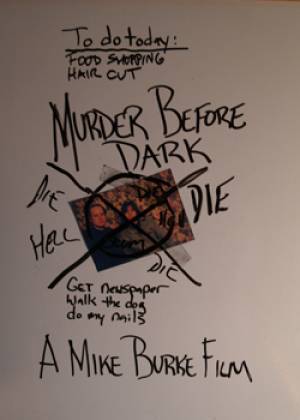 To do today:
FOOD SHOPPING
HAIR CUT
MURDER BEFORE
DARK
DIE
DIE
DIE
HELL
Scum
DIE
GET newspaper
Walk the dog
do my nails
A MIKE BURKE FILM